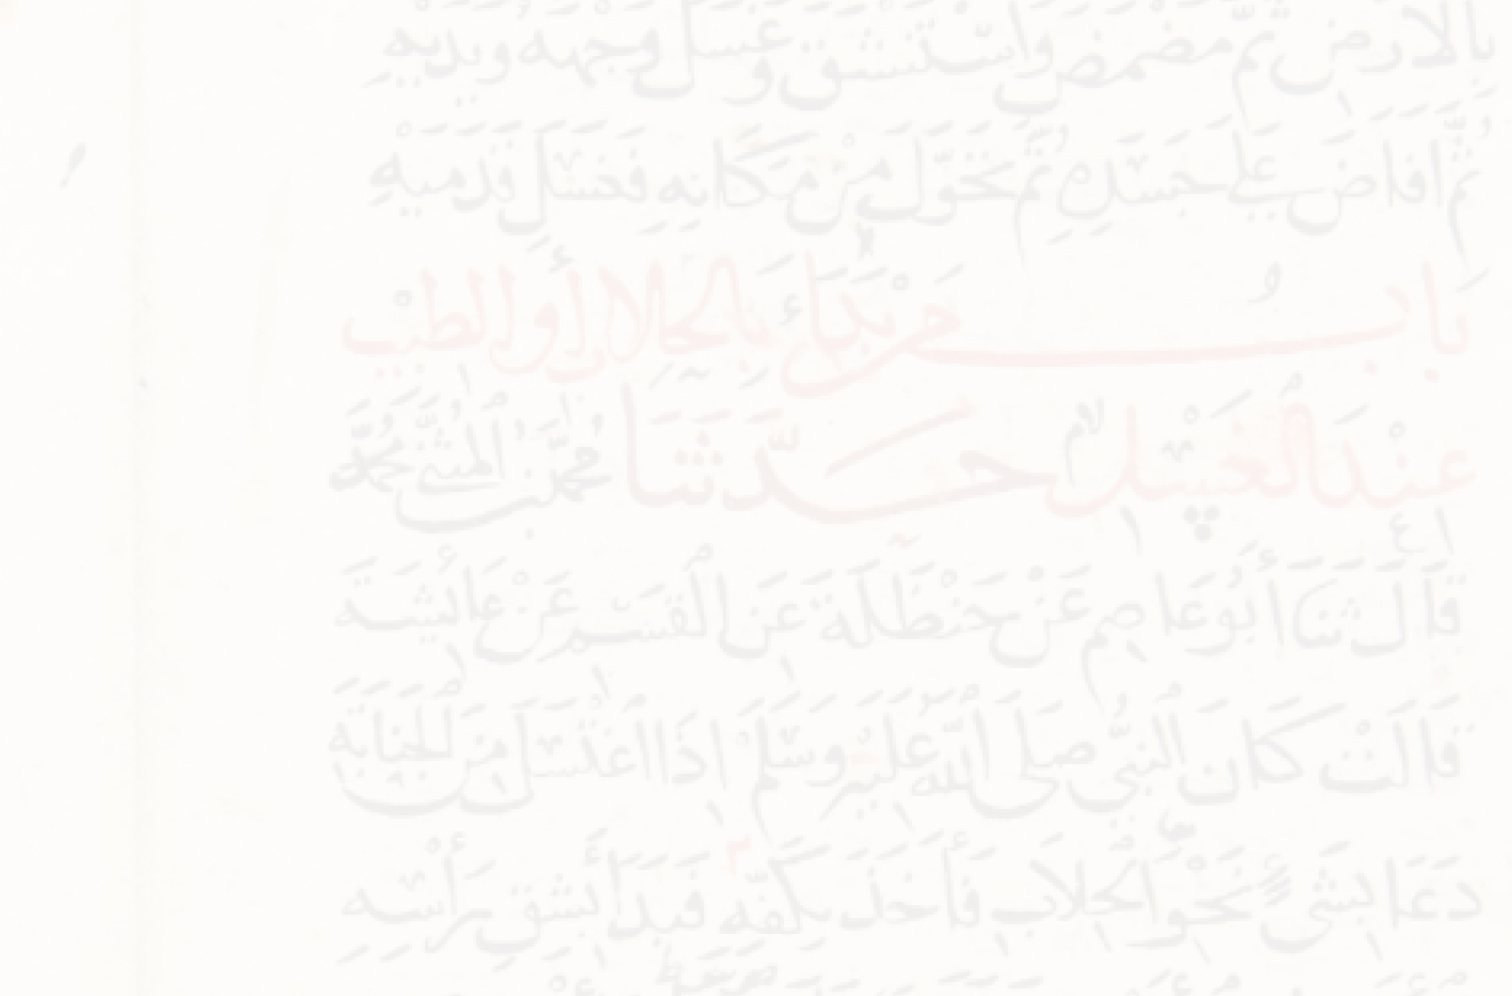 بِالْأَرْضِ ثُمَّ مَضْمَضَ وَاسْتَنْشَقَ وَغَسَلَ وَجْهَهُ وَيَدَيْهِ
ثُمَّ أَفَاضَ عَلَى جَسَدِهِ ثُمَّ تَحَوَّلَ مِنْ مَكَانِهِ فَغَسَلَ قَدَمَيْهِ
بَابُ مَنْ بَدَأَ بِالْحِلَابِ أَوِ الطِّيبِ
عِنْدَ الْغُسْلِ حَدَّثَنَا مُحَمَّدُ بْنُ الْمُثَنَّى
قَالَ ثَنَا أَبُو عَاصِمٍ عَنْ حَنْظَلَةَ عَنِ الْقٰسِمِ عَنْ عَائِشَةَ
قَالَتْ كَانَ النَّبِيُّ صَلَّى اللَّهُ عَلَيْهِ وَسَلَّمَ إِذَا اغْتَسَلَ مِنَ الْجَنَابَةِ
دَعَا بِشَيْءٍ نَحْوَ الْحِلَابِ فَأَخَذَ بِكَفِّهِ فَبَدَأَ بِشِقِّ رَأْسِهِ